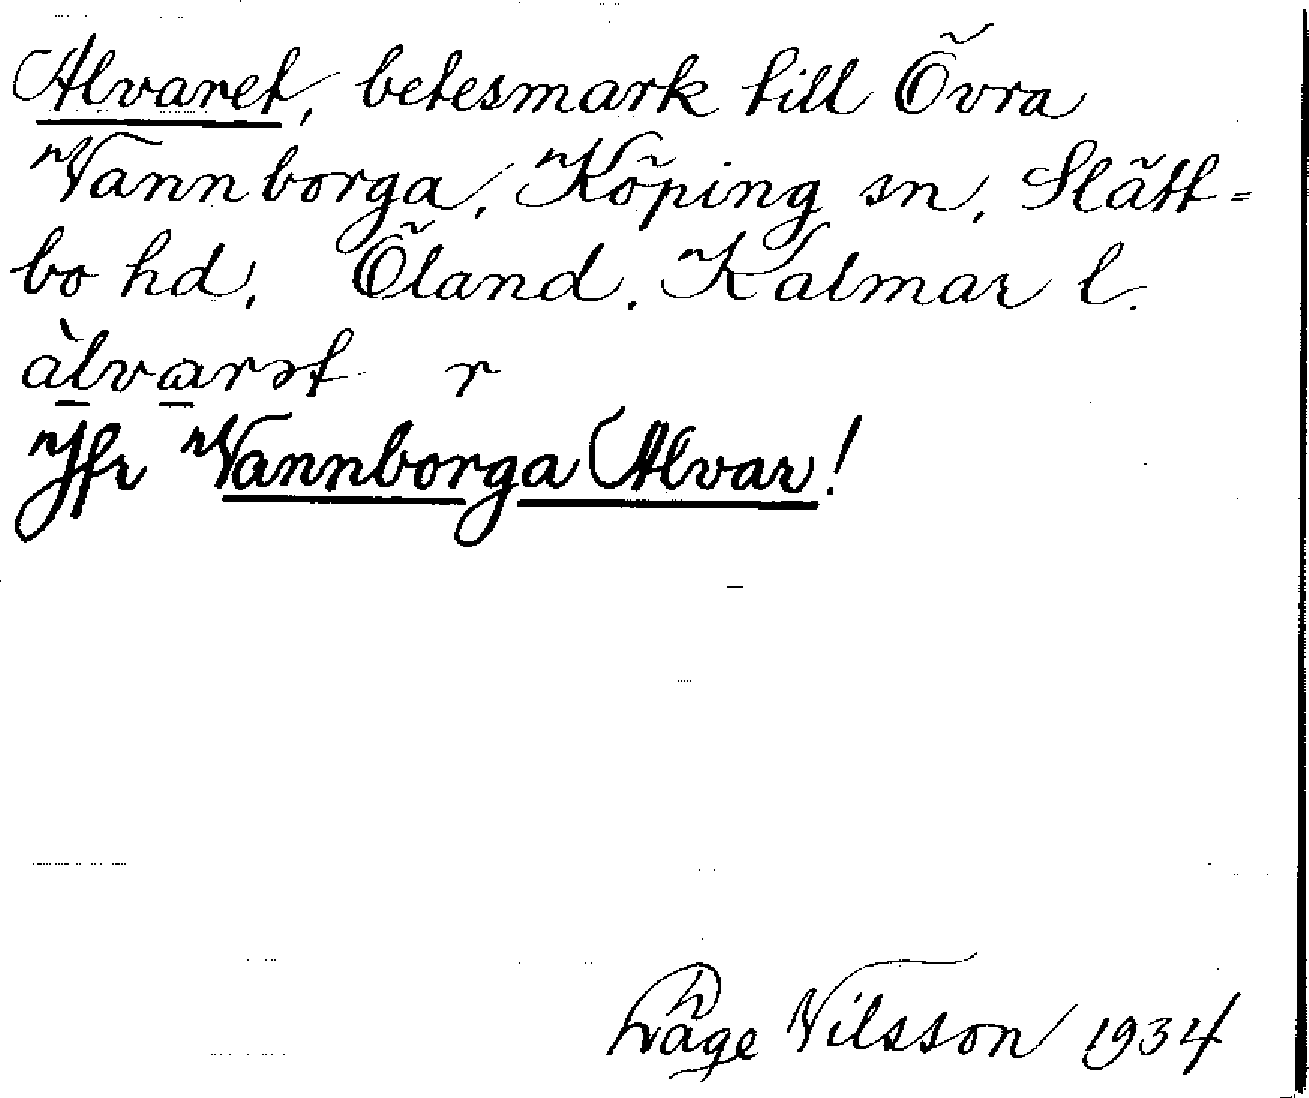 Alvaret, betesmark till Övra
Vannborga, Köping sn, Slätt=
bo hd, Öland. Kalmar l.
àlvarət r
Jfr Vannborga Alvar!
Nilsson 1934